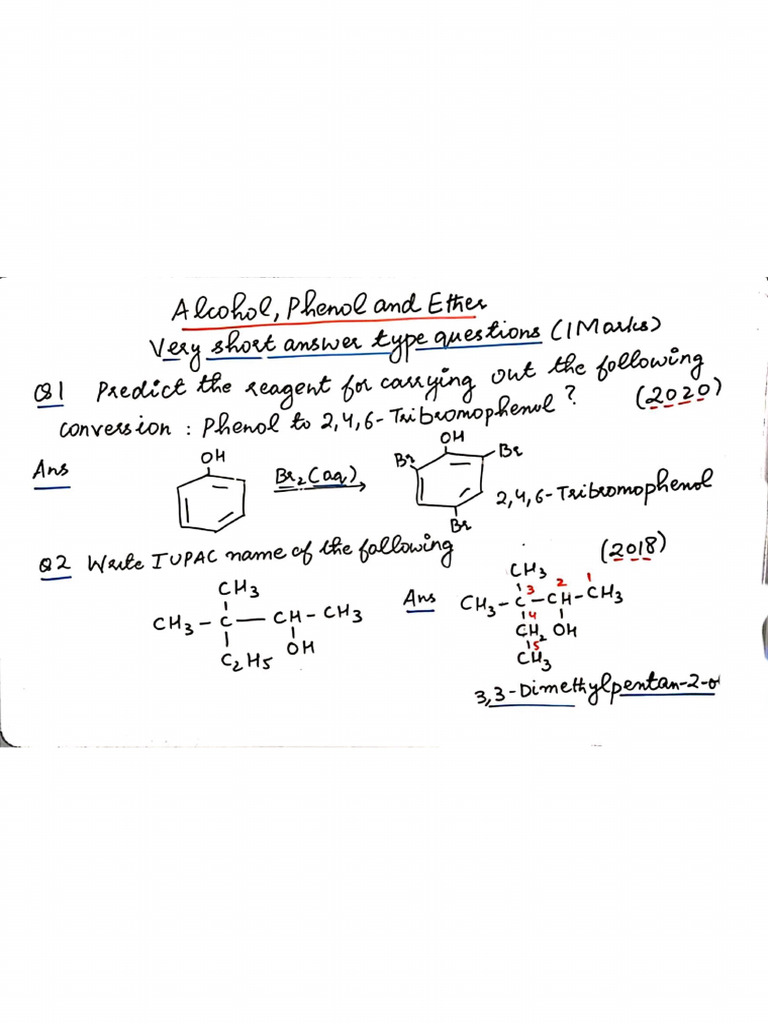 Alcohol, Phenol and Ether
Very short answer type questions (1 Marks)
Q1 Predict the reagent for carrying out the following
conversion : Phenol to 2,4,6-Tribromophenol ? (2020)
Ans
OH
Br2(aq)
OH
Br
Br
Br
2,4,6-Tribromophenol
Q2 Write IUPAC name of the following (2018)
CH3
CH3 - C - CH - CH3
C2H5 OH
Ans
CH3
3 2 1
CH3 - C - CH - CH3
4
CH2 OH
5
CH3
3,3-Dimethylpentan-2-o